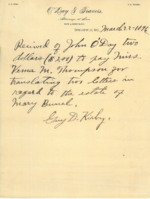 O'Day & Travers,
March 23-1896
Received of John O'Day two
dollars ($2.00) to pay Miss.
Verna M. Thompson for
translating two letters in
regard to the estate of
Mary Bunch.
Guy D. Kirby.